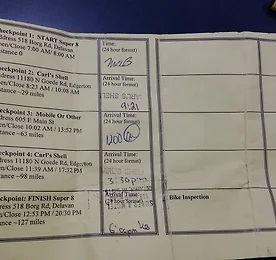 heckpoint 1: START Super 8
dress 518 Borg Rd, Delavan
en/Close 7:00 AM/ 8:00 AM
stance 0
Time:
(24 hour format)
heckpoint 2: Carl's Shell
dress 11180 N Goede Rd, Edgerton
en/Close 8:23 AM / 10:08 AM
stance ~29 miles
Arrival Time:
(24 hour format)
9:21
heckpoint 3: Mobile Or Other
dress 605 E Main St
en/Close 10:02 AM / 13:52 PM
stance ~63 miles
Arrival Time:
(24 hour format)
heckpoint 4: Carl's Shell
dress 11180 N Goede Rd, Edgerton
en/Close 11:39 AM / 17:32 PM
stance ~98 miles
Arrival Time:
(24 hour format)
3:30pm
heckpoint: FINISH Super 8
dress 518 Borg Rd, Delavan
en/Close 12:53 PM / 20:30 PM
stance ~127 miles
Arrival Time:
(24 hour format)
Bike Inspection